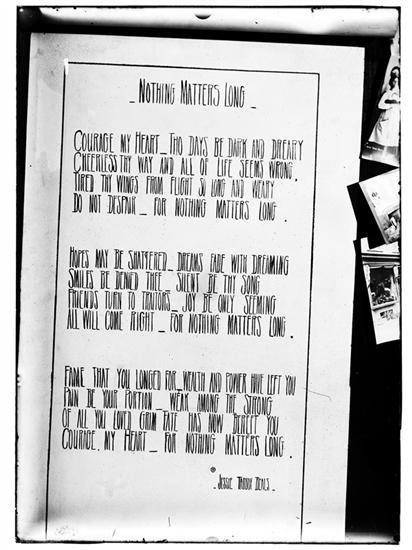 _ NOTHING MATTERS LONG _
COURAGE MY HEART _ THO DAYS BE DARK AND DREARY
CHEERLESS THY WAY AND ALL OF LIFE SEEMS WRONG.
TIRED THY WINGS FROM FLIGHT SO LONG AND WEARY
DO NOT DESPAIR _ FOR NOTHING MATTERS LONG.
HOPES MAY BE SHATTERED _ DREAMS FADE WITH DREAMING
SMILES BE DENIED THEE _ SILENT BE THY SONG
FRIENDS TURN TO TRAITORS _ JOY BE ONLY SEEMING
ALL WILL COME RIGHT _ FOR NOTHING MATTERS LONG.
FAME THAT YOU LONGED FOR _ WEALTH AND POWER HAVE LEFT YOU
PAIN BE YOUR PORTION _ WEAK AMONG THE STRONG
OF ALL YOU LOVED GRIM FATE HAS NOW BEREFT YOU
COURAGE, MY HEART _ FOR NOTHING MATTERS LONG.
©
_ JESSIE TARBOX BEALS _